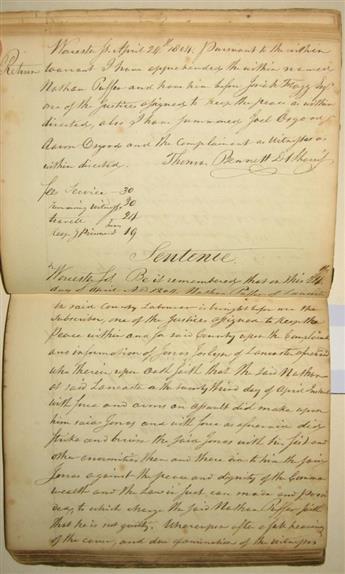 Worcester ss April 24th 1804. Pursuant to the within
Return warrant I have apprehended the within named
Nathan Puffer and have him before Josiah Flagg Esqr
one of the Justices assigned to keep the peace as within
directed, also I have summoned Joel Osgood
Aaron Osgood and the Complainant as Witnesses as
within directed. Thomas Bennett D Sheriff
fee Service - 30
summoning Witness 30
travell - 24
keeping Prisoner 19
Sentence.
Worcester ss. Be it remembered that on this 24th
day of April A.D 1804 Nathan Puffer of Lancaster
in said County Labourer is brought before me the
Subscriber, one of the Justices assigned to keep the
Peace within and for said County upon the Complaint
and information of Jonas Joslyn of Lancaster aforesaid
who therein upon Oath saith that the said Nathan
at said Lancaster on the twenty third day of April Instant
with force and arms an assault did make upon
him said Jonas and with force as aforesaid did
strike and bruise the said Jonas with his fist and
other enormities then and there did to him the said
Jonas against the peace and dignity of the Common
wealth and the Law in such case made and provi
ded, to which charge the said Nathan Puffer saith
that he is not guilty. Whereupon after a full hearing
of the cause, and due examination of the witnesses